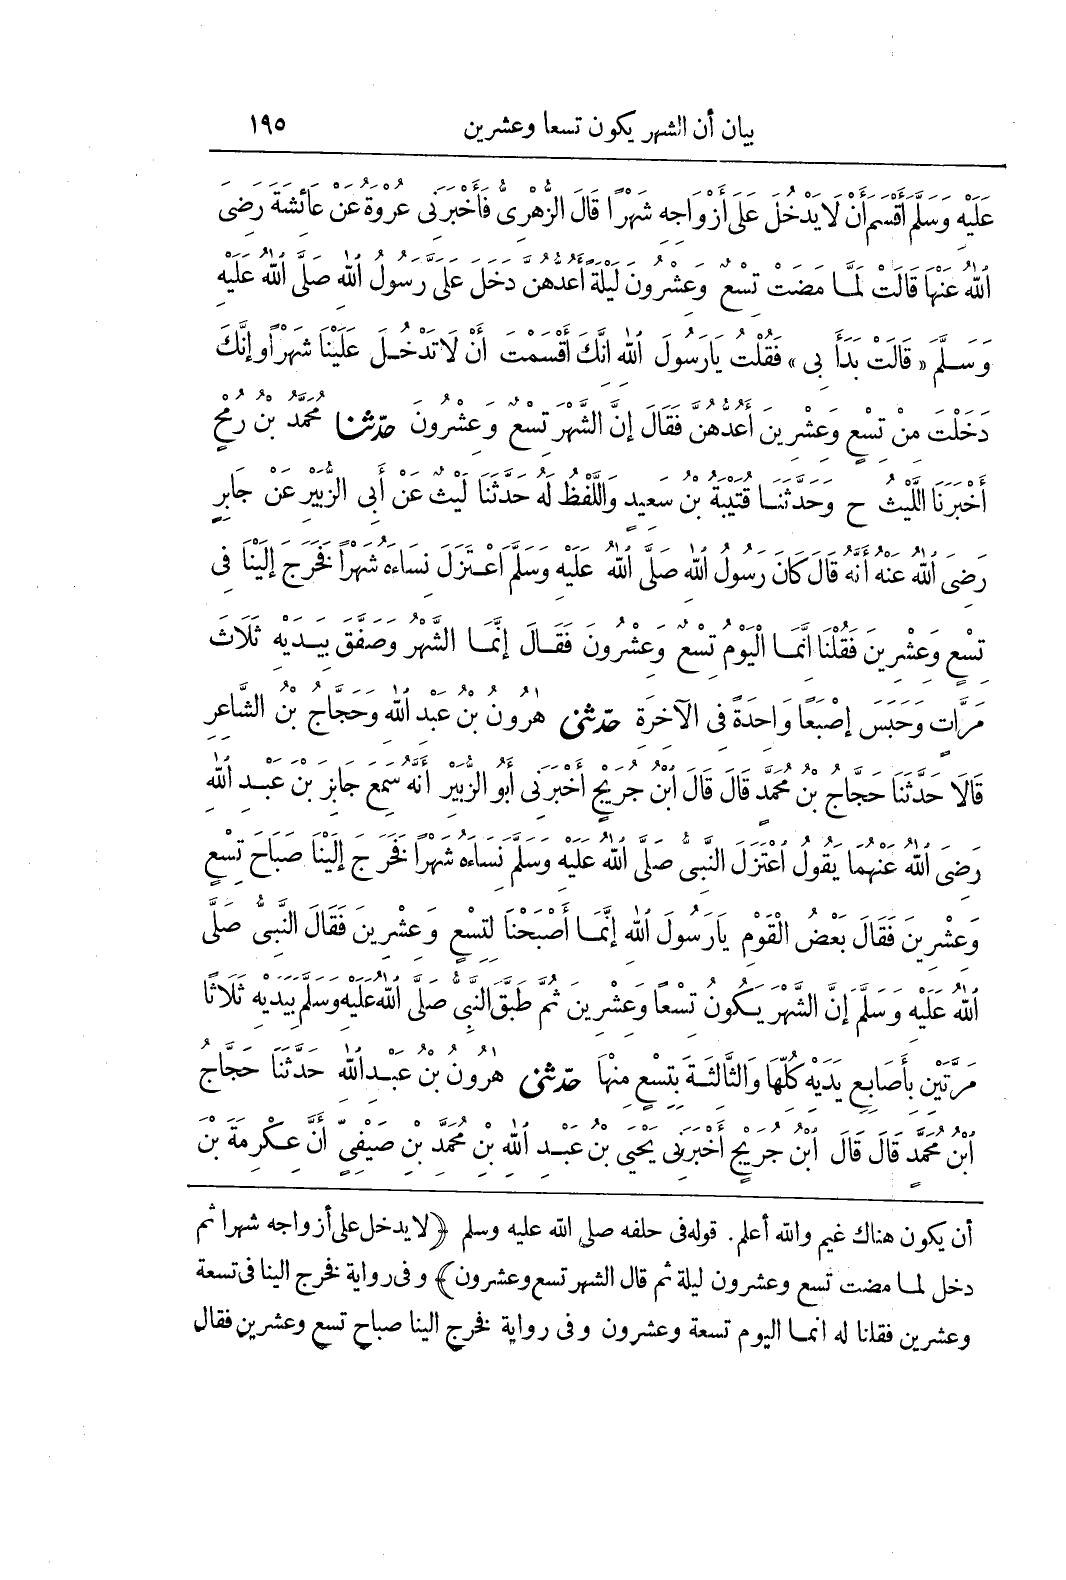 بيان أن الشهر يكون تسعا وعشرين ١٩٥
عَلَيْهِ وَسَلَّمَ أَقْسَمَ أَنْ لَا يَدْخُلَ عَلَى أَزْوَاجِهِ شَهْرًا قَالَ الزُّهْرِىُّ فَأَخْبَرَنِى عُرْوَةُ عَنْ عَائِشَةَ رَضِىَ
اللهُ عَنْهَا قَالَتْ لَمَّا مَضَتْ تِسْعٌ وَعِشْرُونَ لَيْلَةً أَعُدُّهُنَّ دَخَلَ عَلَىَّ رَسُولُ اللهِ صَلَّى اللهُ عَلَيْهِ
وَسَلَّمَ «قَالَتْ بَدَأَ بِى» فَقُلْتُ يَارَسُولَ اللهِ انَّكَ أَقْسَمْتَ أَنْ لَا تَدْخُلَ عَلَيْنَا شَهْرًا وَإِنَّكَ
دَخَلْتَ مِنْ تِسْعٍ وَعِشْرِينَ أَعُدُّهُنَّ فَقَالَ إِنَّ الشَّهْرَ تِسْعٌ وَعِشْرُونَ حدّثنا مُحَمَّدُ بْنُ رُمْحٍ
أَخْبَرَنَا اللَّيْثُ ح وَحَدَّثَنَا قُتَيْبَةُ بْنُ سَعِيدٍ وَاللَّفْظُ لَهُ حَدَّثَنَا لَيْثٌ عَنْ أَبِى الزُّبَيْرِ عَنْ جَابِرٍ
رَضِىَ اللهُ عَنْهُ أَنَّهُ قَالَ كَانَ رَسُولُ اللهِ صَلَّى اللهُ عَلَيْهِ وَسَلَّمَ اعْتَزَلَ نِسَاءَهُ شَهْرًا فَخَرَجَ إِلَيْنَا فِى
تِسْعٍ وَعِشْرِينَ فَقُلْنَا انَّمَا الْيَوْمُ تِسْعٌ وَعِشْرُونَ فَقَالَ إِنَّمَا الشَّهْرُ وَصَفَّقَ بِيَدَيْهِ ثَلَاثَ
مَرَّاتٍ وَحَبَسَ إِصْبَعًا وَاحِدَةً فِى الآخِرَةِ حدّثنى هٰرُونُ بْنُ عَبْدِ اللهِ وَحَجَّاجُ بْنُ الشَّاعِرِ
قَالَا حَدَّثَنَا حَجَّاجُ بْنُ مُحَمَّدٍ قَالَ قَالَ ابْنُ جُرَيْجٍ أَخْبَرَنِى أَبُو الزُّبَيْرِ أَنَّهُ سَمِعَ جَابِرَ بْنَ عَبْدِ اللهِ
رَضِىَ اللهُ عَنْهُمَا يَقُولُ اعْتَزَلَ النَّبِىُّ صَلَّى اللهُ عَلَيْهِ وَسَلَّمَ نِسَاءَهُ شَهْرًا فَخَرَجَ إِلَيْنَا صَبَاحَ تِسْعٍ
وَعِشْرِينَ فَقَالَ بَعْضُ الْقَوْمِ يَارَسُولَ اللهِ إِنَّمَا أَصْبَحْنَا لِتِسْعٍ وَعِشْرِينَ فَقَالَ النَّبِىُّ صَلَّى
اللهُ عَلَيْهِ وَسَلَّمَ إِنَّ الشَّهْرَ يَكُونُ تِسْعًا وَعِشْرِينَ ثُمَّ طَبَّقَ النَّبِىُّ صَلَّى اللهُ عَلَيْهِ وَسَلَّمَ بِيَدَيْهِ ثَلَاثًا
مَرَّتَيْنِ بِأَصَابِعِ يَدَيْهِ كُلِّهَا وَالثَّالِثَةَ بِتِسْعٍ مِنْهَا حدّثنى هٰرُونُ بْنُ عَبْدِ اللهِ حَدَّثَنَا حَجَّاجُ
ابْنُ مُحَمَّدٍ قَالَ قَالَ ابْنُ جُرَيْجٍ أَخْبَرَنِى يَحْيَى بْنُ عَبْدِ اللهِ بْنِ مُحَمَّدِ بْنِ صَيْفِيٍّ أَنَّ عِكْرِمَةَ بْنَ
أن يكون هناك غيم والله أعلم. قوله فى حلفه صلى الله عليه وسلم ﴿لا يدخل على أزواجه شهرا ثم
دخل لما مضت تسع وعشرون ليلة ثم قال الشهر تسع وعشرون﴾ وفى رواية فخرج الينا فى تسعة
وعشرين فقلنا له انما اليوم تسعة وعشرون وفى رواية فخرج الينا صباح تسع وعشرين فقال